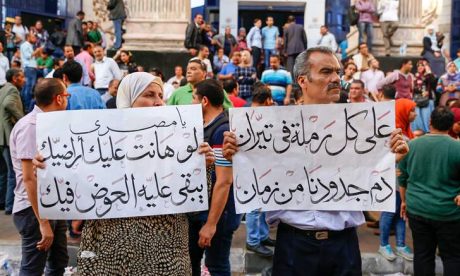 يا مصري
لو هانت عليك أرضك
يبقى عليه العوض فيك
على كل رملة في تيران
دم جدودنا من زمان